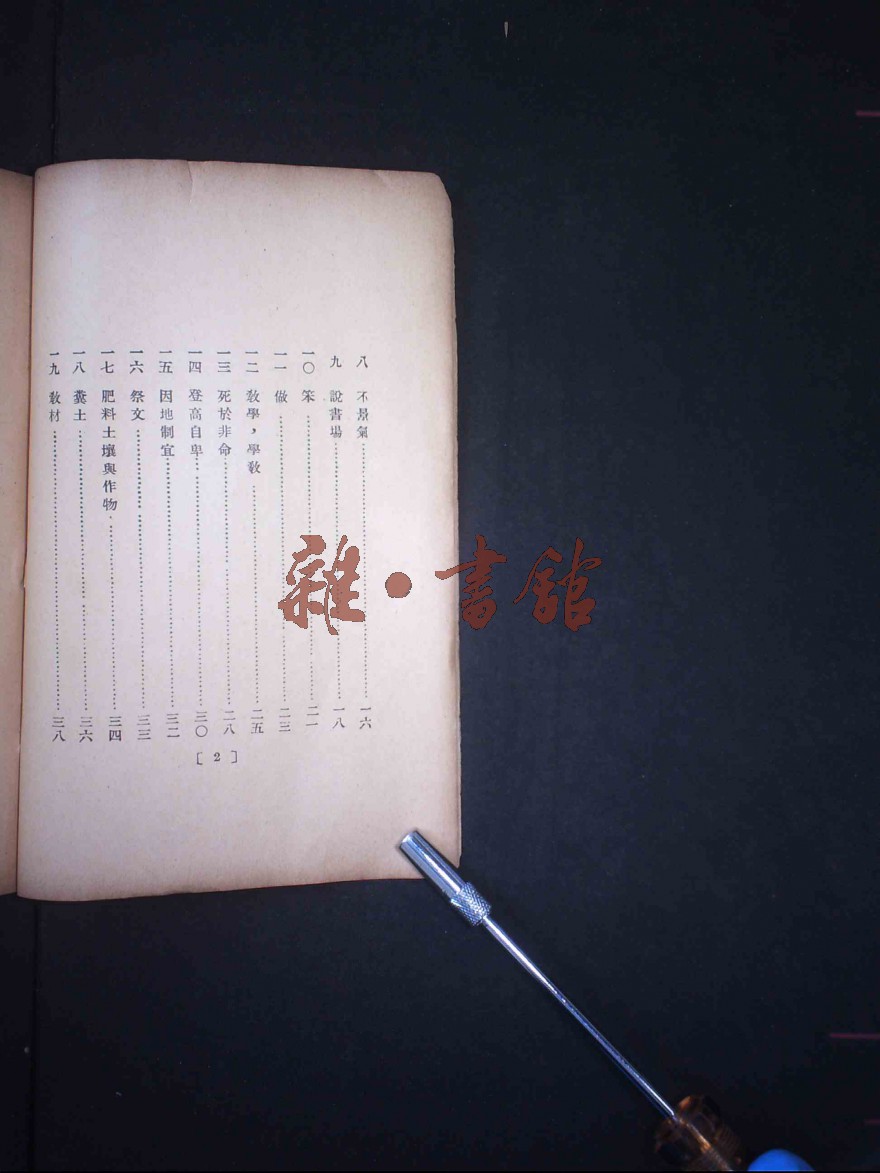 八　不景氣…………一六
九　說書場…………一八
一〇　笨…………二一
一一　做…………二三
一二　敎學，學敎…………二五
一三　死於非命…………二八
一四　登高自卑…………三〇
一五　因地制宜…………三二
一六　祭文…………三三
一七　肥料土壤與作物…………三四
一八　糞土…………三六
一九　敎材…………三八
［2］
雜·書館